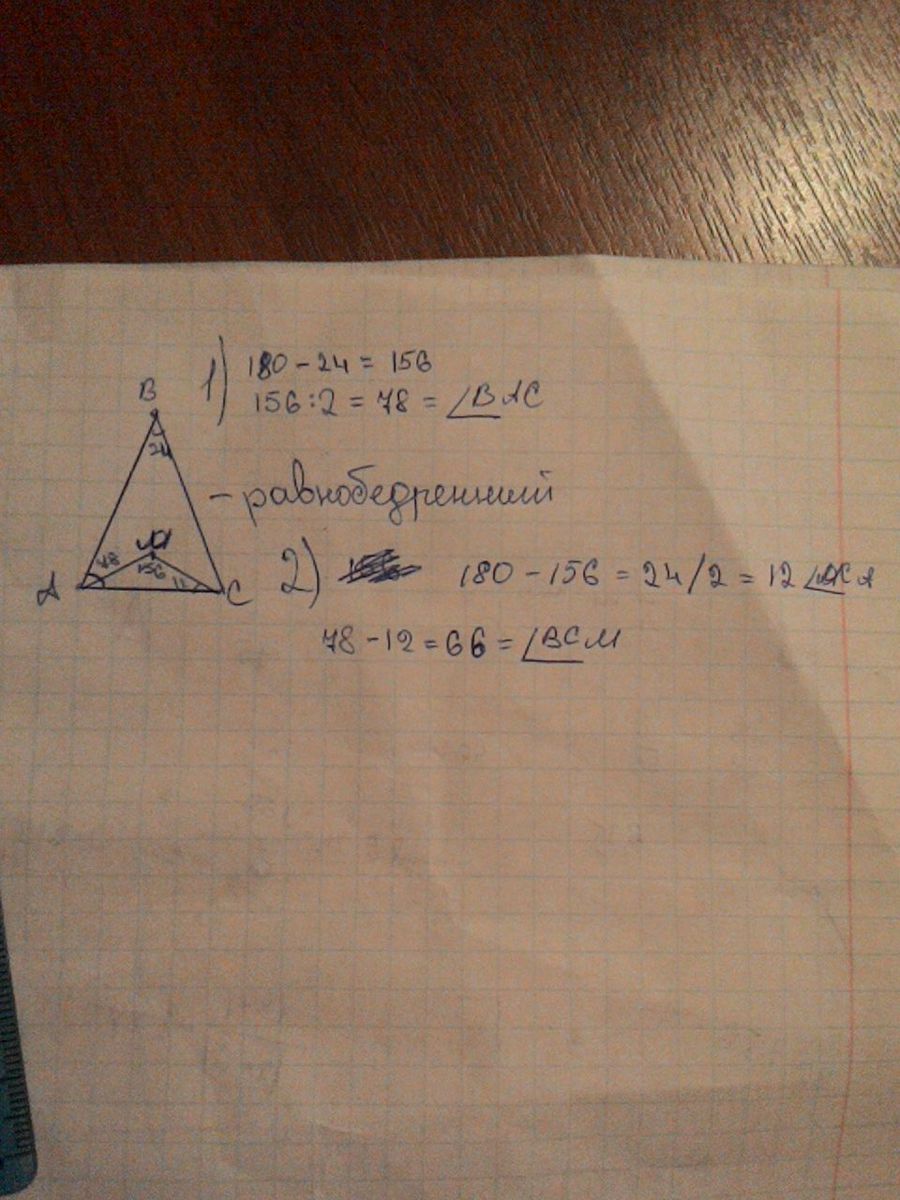 1) 180 - 24 = 156
156 : 2 = 78 = ∠BAC
B
24
- равнобедренний
M
78
156
12
A
C
2) 180 - 156 = 24/2 = 12 ∠MCA
78 - 12 = 66 = ∠BCM